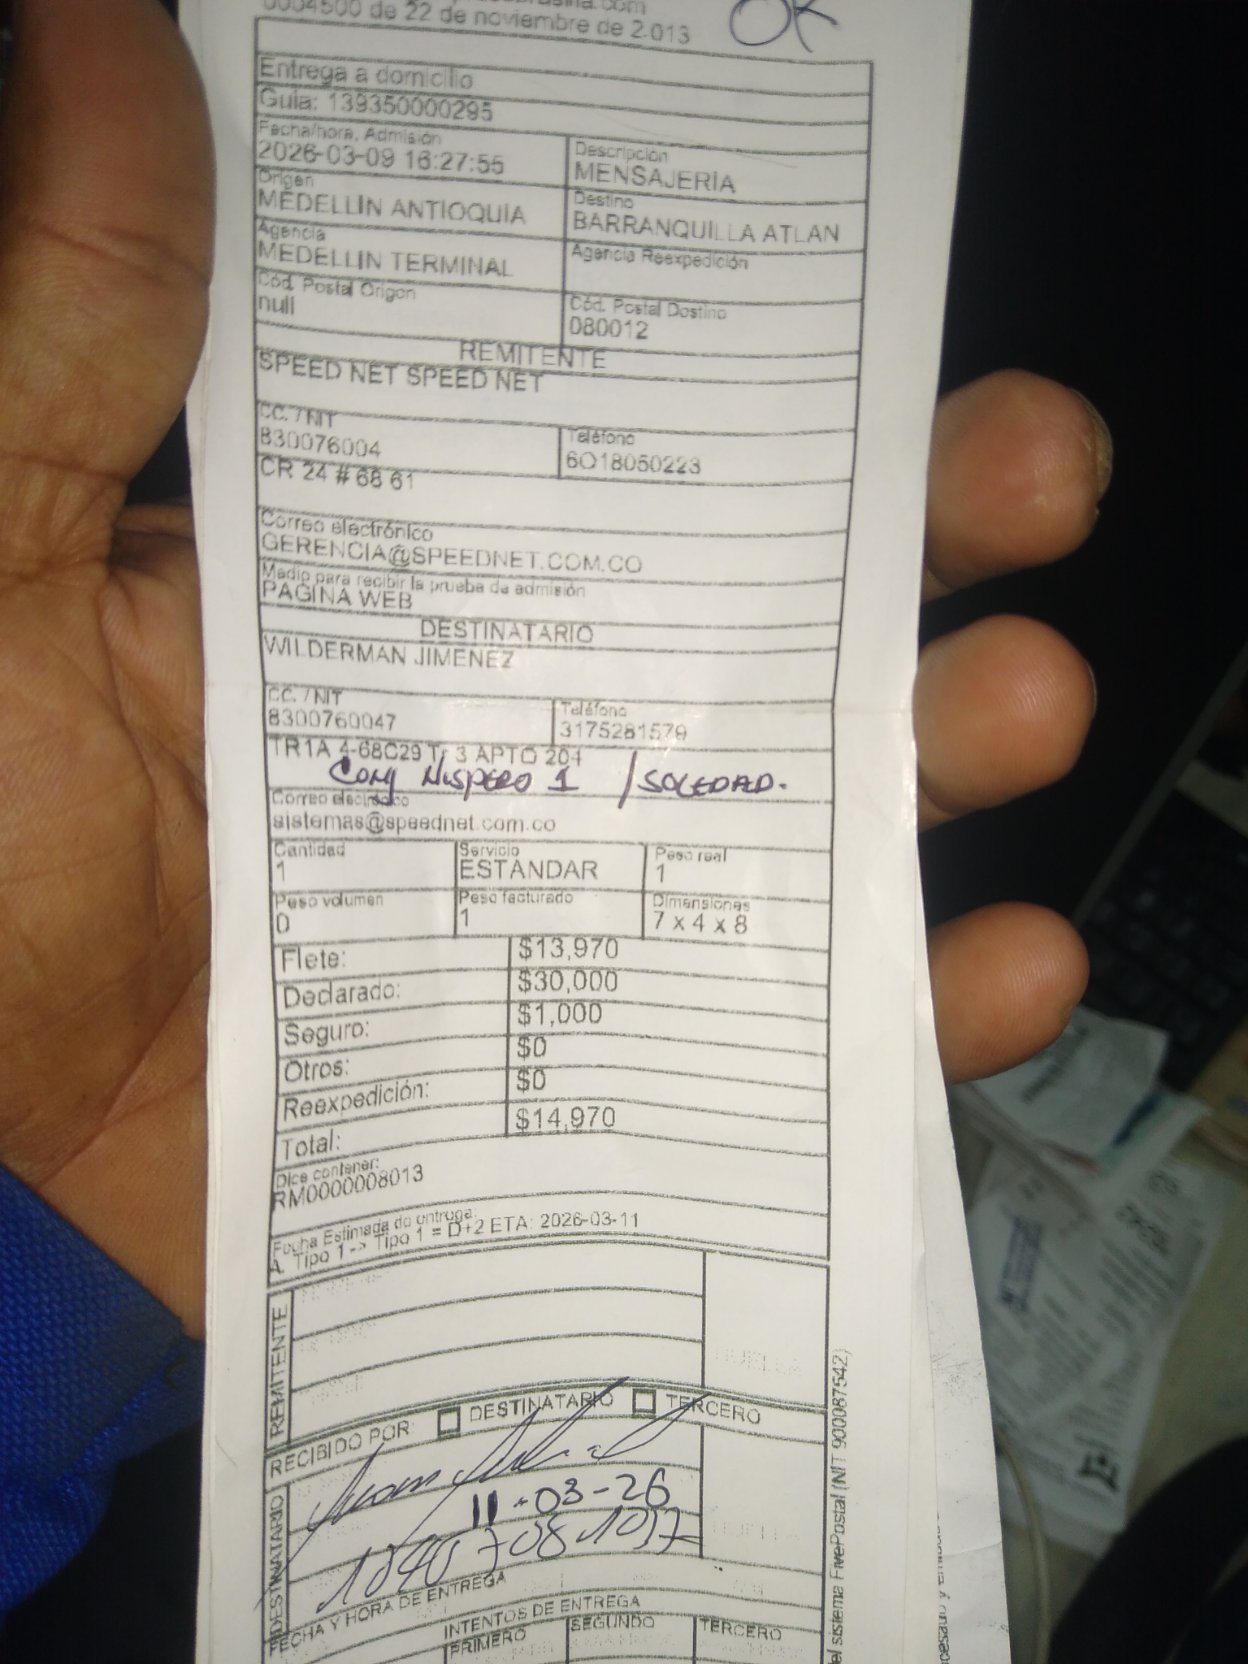 0004500 de 22 de noviembre de 2.013
OK
Entrega a domicilio
Guia: 139350000295
Fecha/hora, Admisión
2026-03-09 16:27:55
Descripción
MENSAJERIA
Origen
MEDELLIN ANTIOQUIA
Destino
BARRANQUILLA ATLAN
Agencia
MEDELLIN TERMINAL
Agencia Reexpedición
Cód. Postal Origen
null
Cód. Postal Destino
080012
REMITENTE
SPEED NET SPEED NET
CC. / NIT
830076004
Teléfono
6018050223
CR 24 # 68 61
Correo electrónico
GERENCIA@SPEEDNET.COM.CO
Medio para recibir la prueba de admisión
PAGINA WEB
DESTINATARIO
WILDERMAN JIMENEZ
CC. / NIT
8300760047
Teléfono
3175281579
TR1A 4-68C29 Tr 3 APTO 204
Conj Nispero 1 / SOLEDAD.
Correo electrónico
sistemas@speednet.com.co
Cantidad
1
Servicio
ESTANDAR
Peso real
1
Peso volumen
0
Peso facturado
1
Dimensiones
7 x 4 x 8
Flete: $13,970
Declarado: $30,000
Seguro: $1,000
Otros: $0
Reexpedición: $0
Total: $14,970
Dice contener:
RM0000008013
Fecha Estimada de entrega:
A. Tipo 1 -> Tipo 1 = D+2 ETA: 2026-03-11
REMITENTE
HUELLA
RECIBIDO POR: DESTINATARIO TERCERO
DESTINATARIO
Juan
11-03-26
HUELLA
FECHA Y HORA DE ENTREGA
INTENTOS DE ENTREGA
PRIMERO SEGUNDO TERCERO
el sistema FivePostal (NIT 900087542)